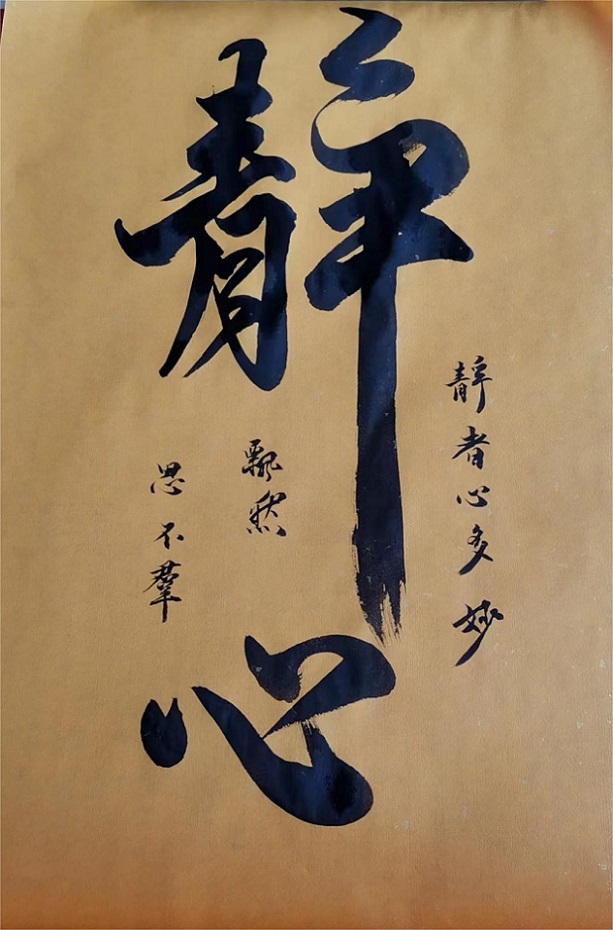 靜心
靜者心多妙
飄然
思不羣